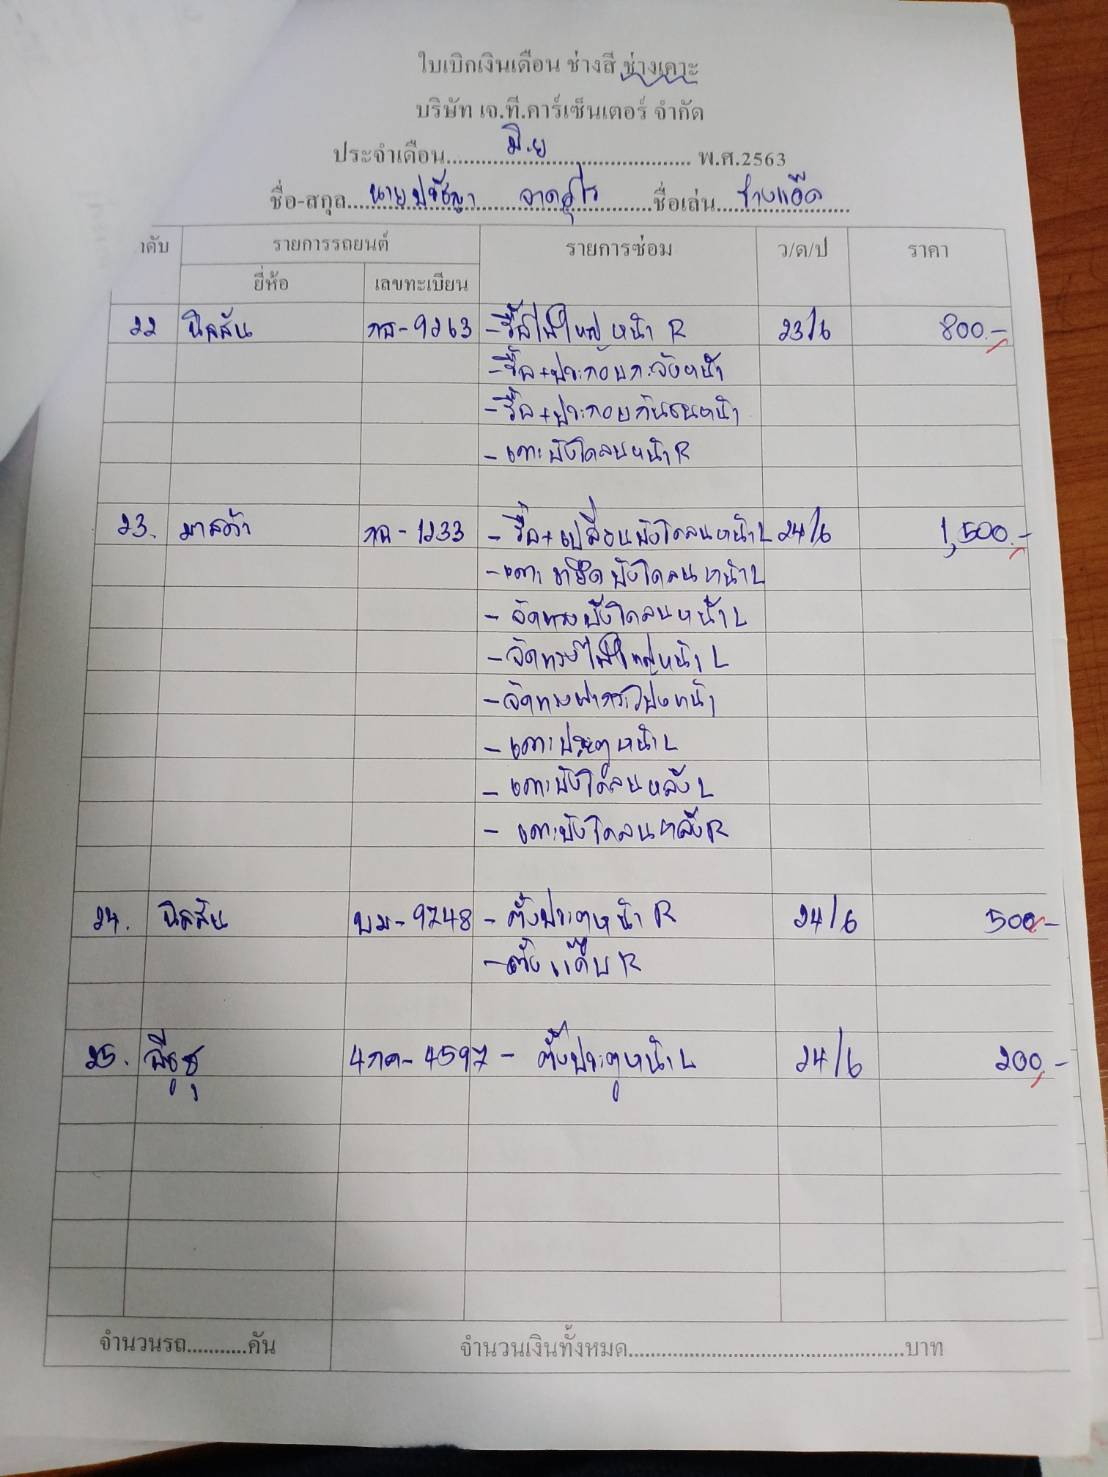 ใบเบิกเงินเดือน ช่างสี ช่างเคาะ
บริษัท เจ.ที.คาร์เซ็นเตอร์ จำกัด
ประจำเดือน.....มิ.ย.....พ.ศ.2563
ชื่อ-สกุล...นายปรัชญา.....ชื่อเล่น...ช่างแอ๊ด...
าดับ รายการรถยนต์ รายการซ่อม ว/ด/ป ราคา
ยี่ห้อ เลขทะเบียน
22 นิสสัน กล-9263 -รื้อไฟใหญ่หน้า R 23/6 800.-
-รื้อ+ประกอบกะจังหน้า
-รื้อ+ประกอบกันชนหน้า
-เคาะบังโคลนหน้า R
23. มาสด้า 1233 -รื้อ+เปลี่ยนบังโคลนหน้า L 24/6 1,500.-
-เคาะ บังโคลนหน้า L
-จัดทรงบังโคลนหน้า L
-จัดทรงไฟใหญ่หน้า L
-จัดทรงฝากระโปรงหน้า
-เคาะประตูหน้า L
-เคาะบังโคลนหลัง L
-เคาะบังโคลนหลัง R
24. นิสสัน บม-9748 -ตั้งประตูหน้า R 24/6 500.-
-ตั้งแค็บ R
25. อีซูซุ 4กค-4597 -ตั้งประตูหน้า L 24/6 200.-
จำนวนรถ...........คัน จำนวนเงินทั้งหมด...............................................บาท